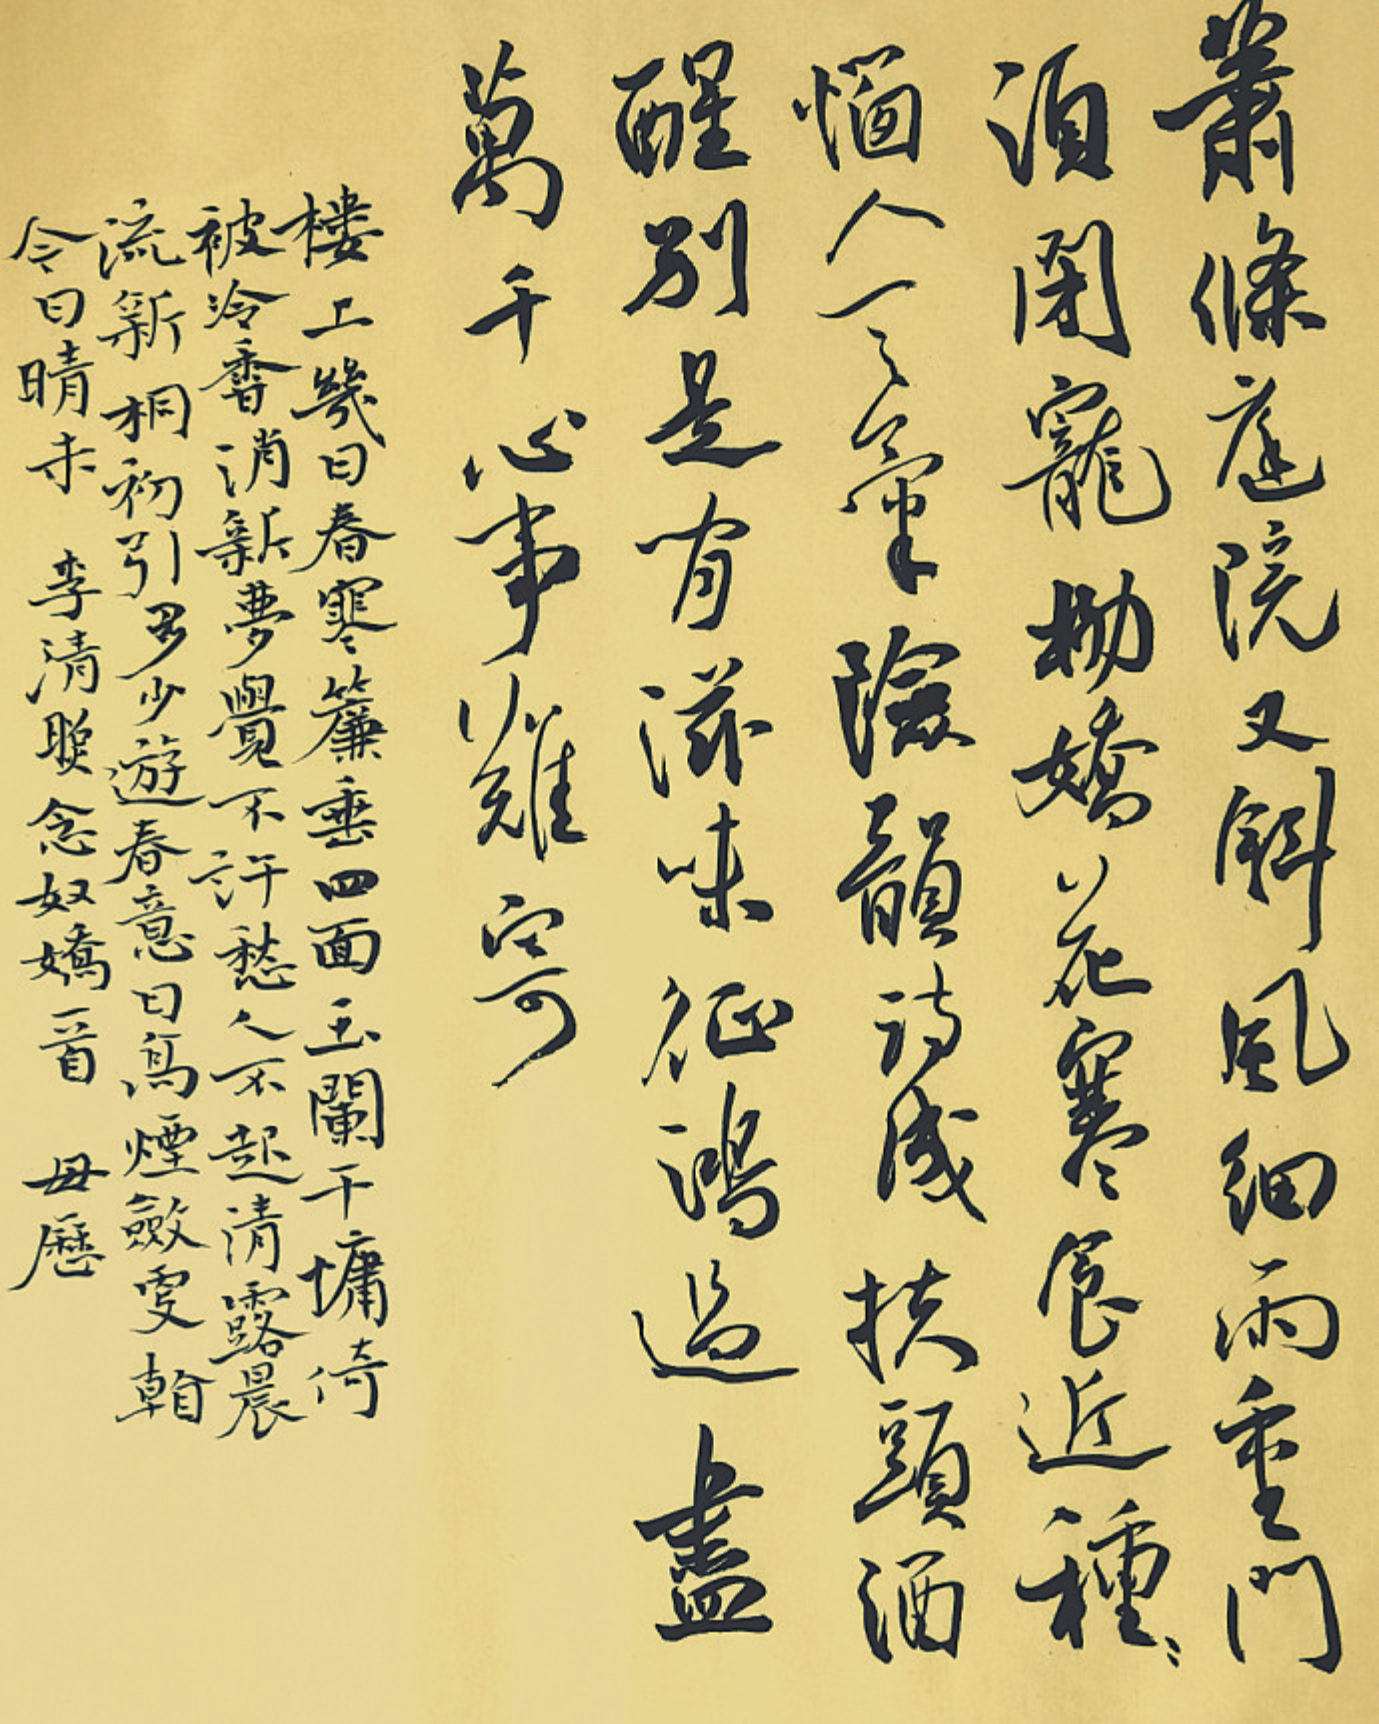 蕭條庭院又斜風細雨重門
須閉寵柳嬌花寒食近種〻
惱人天氣險韻詩成扶頭酒
醒別是有滋味征鴻過盡
萬千心事難寄
樓上幾日春寒簾垂四面玉闌干慵倚
被冷香消新夢覺不許愁人不起清露晨
流新桐初引多少遊春意日高煙斂更看
今日晴未 李清照念奴嬌一首